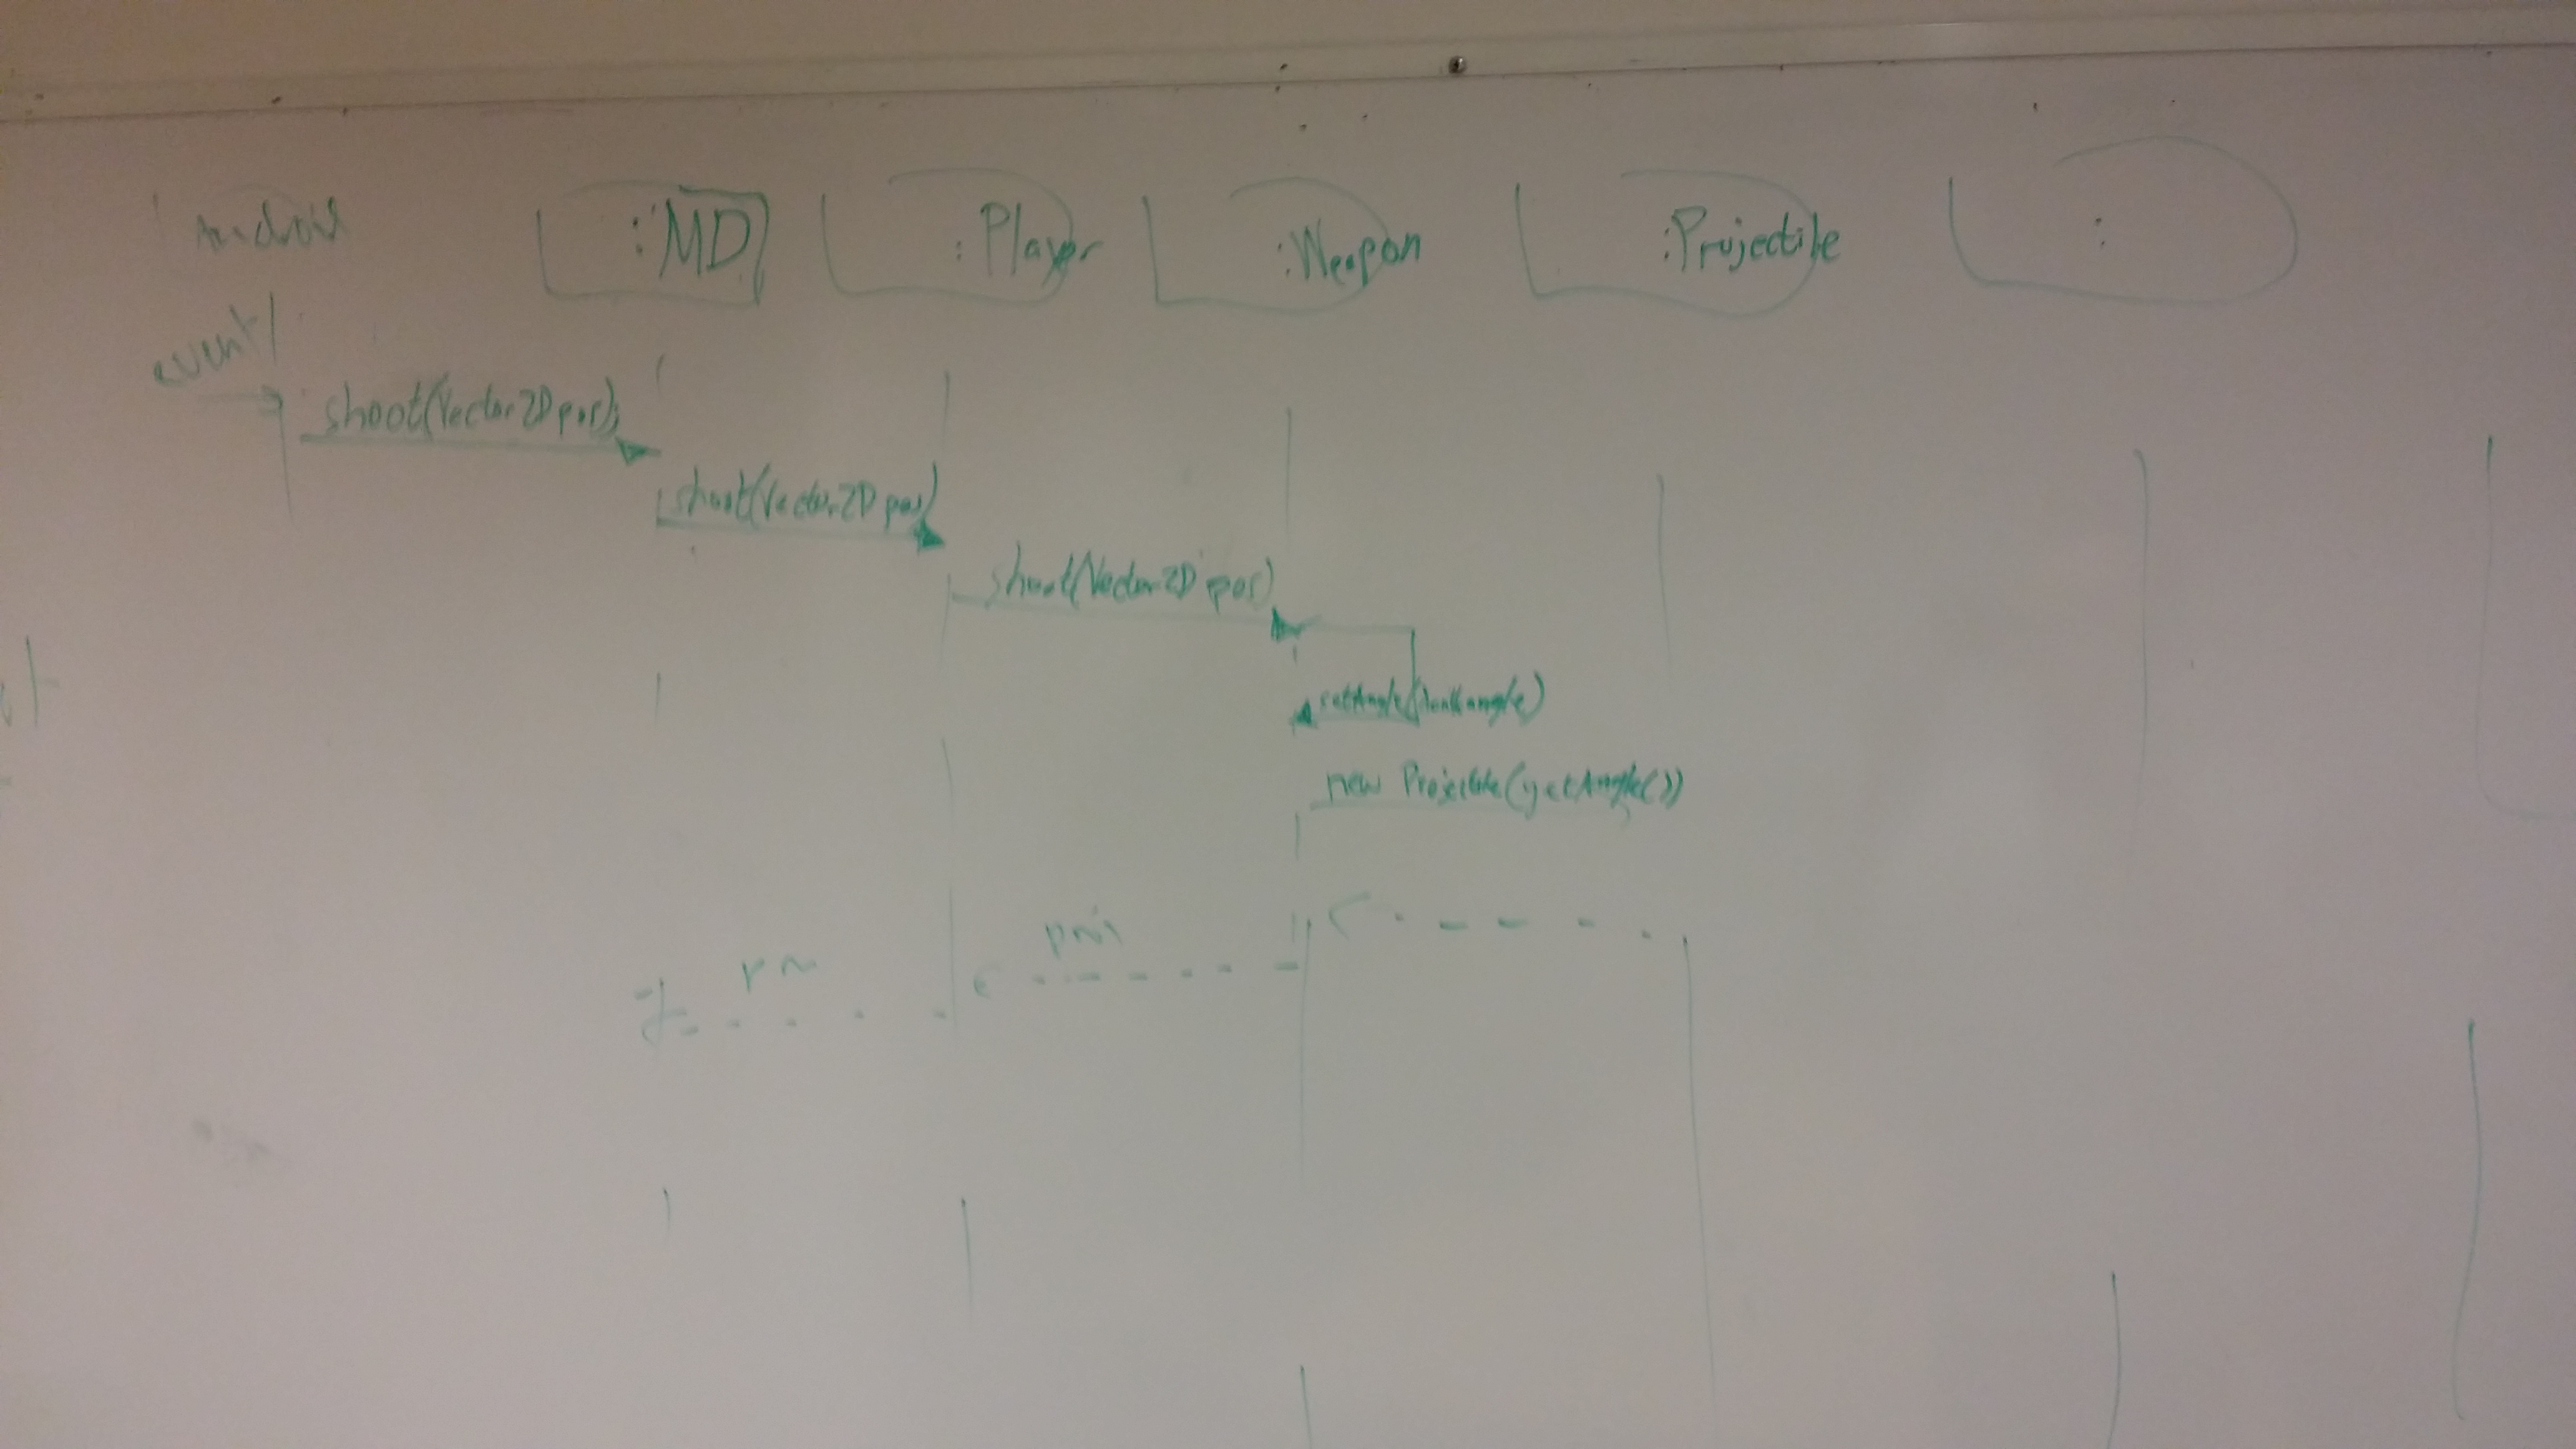 Android :MD :Player :Weapon :Projectile :
event
shoot(Vector2D pos);
shoot(Vector2D pos)
shoot(Vector2D pos)
setAngle(
new Projectile(getAngle())